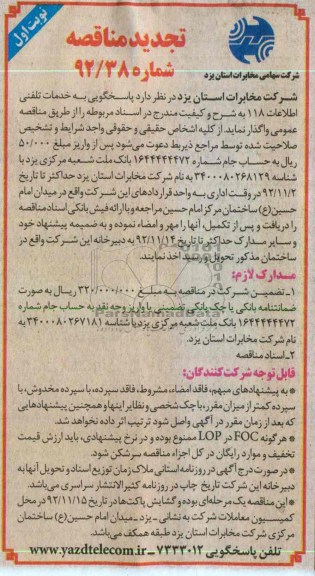 نوبت اول
تجدید مناقصه
شماره ۹۲/۳۸
شرکت سهامی مخابرات استان یزد
شرکت مخابرات استان یزد در نظر دارد پاسخگویی به خدمات تلفنی
اطلاعات ۱۱۸ به شرح و کیفیت مندرج در اسناد مربوطه را از طریق مناقصه
عمومی واگذار نماید. از کلیه اشخاص حقیقی و حقوقی واجد شرایط و تشخیص
صلاحیت شده توسط مراجع ذیربط دعوت می‌شود پس از واریز مبلغ ۵۰/۰۰۰
ریال به حساب جام شماره ۱۶۴۴۴۴۴۴۷۲ بانک ملت شعبه مرکزی یزد با
شناسه ۳۴۰۰۰۸۰۲۶۸۱۲۹ به نام شرکت مخابرات استان یزد حداکثر تا تاریخ
۹۲/۱۱/۲ در وقت اداری به واحد قراردادهای این شرکت واقع در میدان امام
حسین(ع) ساختمان مرکز امام حسین مراجعه و با ارائه فیش بانکی اسناد مناقصه
را دریافت و پس از تکمیل، آنها را مهر و امضاء نموده و به ضمیمه پیشنهاد خود
و سایر مدارک حداکثر تا تاریخ ۹۲/۱۱/۱۴ به دبیرخانه این شرکت واقع در
ساختمان مذکور تحویل و رسید اخذ نمایند.
مدارک لازم:
۱ـ تضمین شرکت در مناقصه به مبلغ ۳۲۰/۰۰۰/۰۰۰ ریال به صورت
ضمانتنامه بانکی یا چک بانکی تضمینی یا واریز وجه نقد به حساب جام شماره
۱۶۴۴۴۴۴۴۷۲ بانک ملت شعبه مرکزی یزد با شناسه ۳۴۰۰۰۸۰۲۶۷۱۸۱ به
نام شرکت مخابرات استان یزد.
۲ـ اسناد مناقصه
قابل توجه شرکت کنندگان:
* به پیشنهادهای مبهم، فاقد امضاء، مشروط، فاقد سپرده، با سپرده مخدوش، با
سپرده کمتر از میزان مقرر، با چک شخصی و نظایر اینها و همچنین پیشنهادهایی
که بعد از زمان مقرر در آگهی واصل شود ترتیب اثر داده نخواهد شد.
* هر گونه FOC در LOP ممنوع بوده و در نرخ پیشنهادی، باید ارزش قیمت
تخفیف و موارد رایگان در کل اجزاء مناقصه سرشکن شود.
* در صورت درج آگهی در روزنامه استانی ملاک زمان توزیع اسناد و تحویل آنها به
دبیرخانه این شرکت تاریخ چاپ در روزنامه کثیر الانتشار سراسری می‌باشد.
* این مناقصه یک مرحله‌ای بوده و گشایش پاکت‌ها در تاریخ ۹۲/۱۱/۱۵ در محل
کمیسیون معاملات شرکت به نشانی ـ یزد ـ میدان امام حسین(ع) ساختمان
مرکزی شرکت مخابرات استان یزد طبقه همکف می‌باشد.
تلفن پاسخگویی ۷۲۳۳۰۱۲ ـ www.yazdtelecom.ir